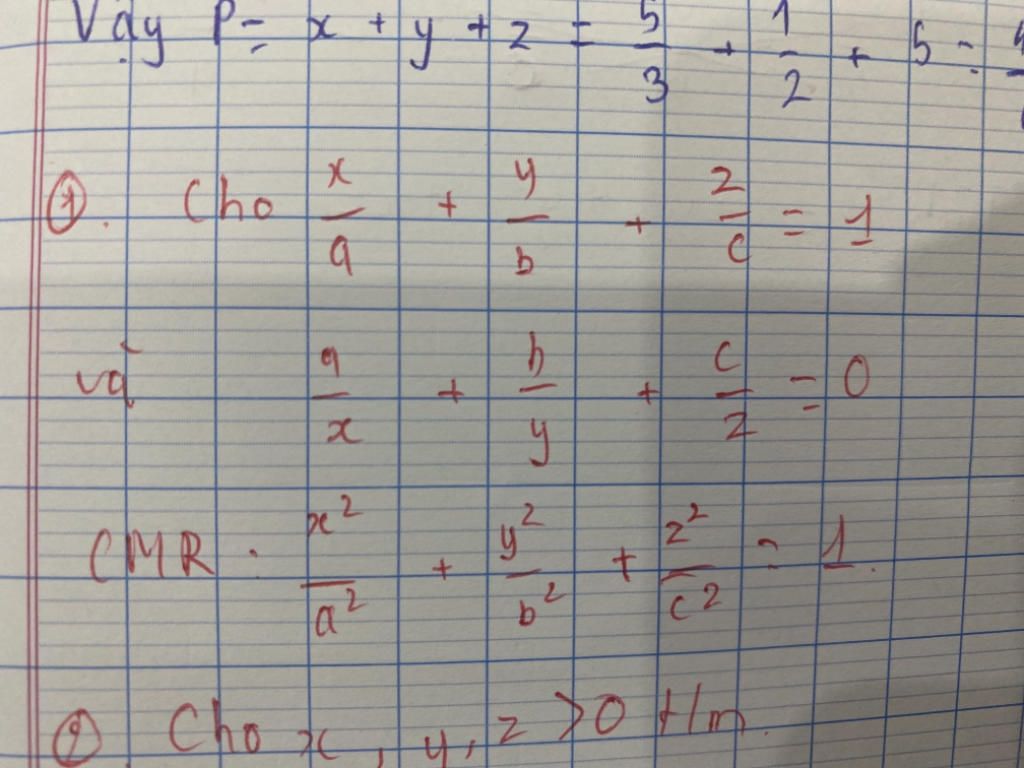 Vậy P = x + y + z = 5/3 + 1/2 + 5 =
①. Cho x/a + y/b + z/c = 1
và a/x + b/y + c/z = 0
CMR: x²/a² + y²/b² + z²/c² = 1.
②. Cho x, y, z > 0 t/m.